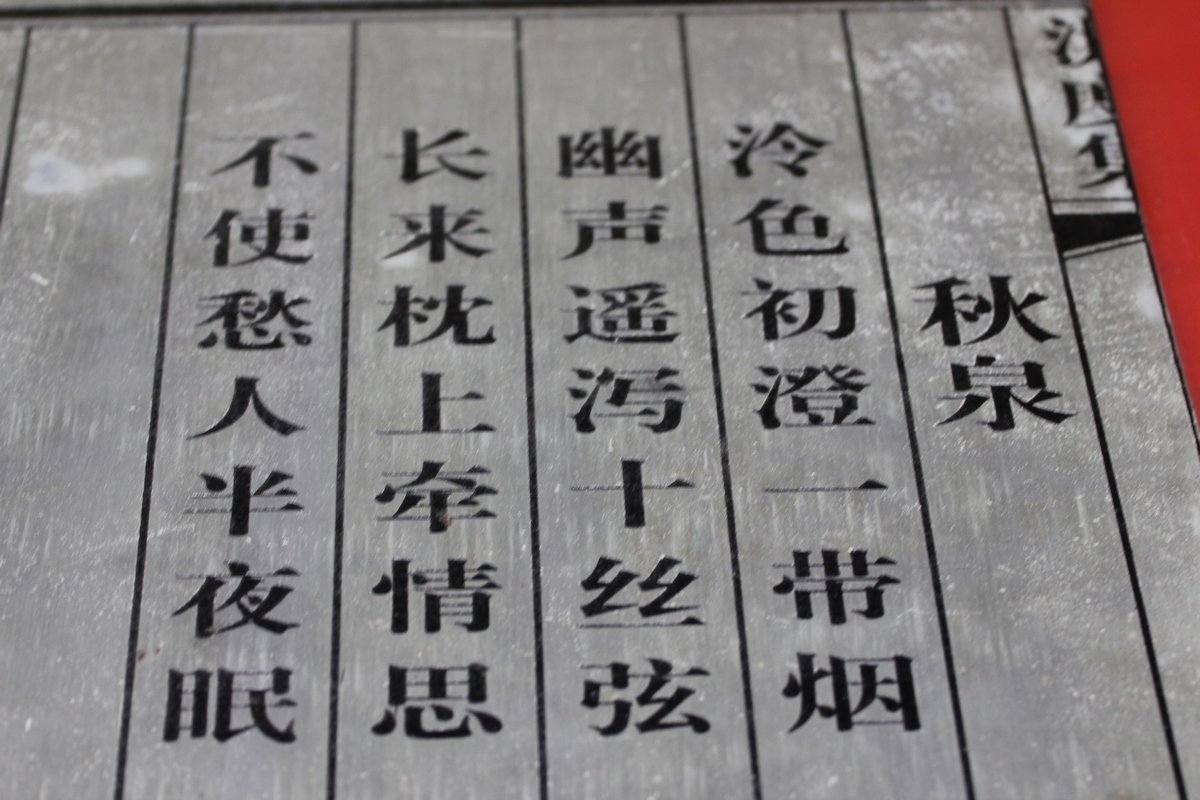 秋泉
泠色初澄一带烟
幽声遥泻十丝弦
长来枕上牵情思
不使愁人半夜眠